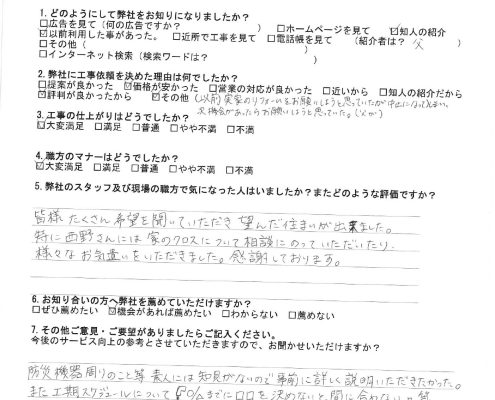 1. どのようにして弊社をお知りになりましたか?
□広告を見て (何の広告ですか? ) □ホームページを見て ☑知人の紹介
☑以前利用した事があった。 □近所で工事を見て □電話帳を見て (紹介者は? 父 )
□その他 ( )
□インターネット検索 (検索ワードは? )
2. 弊社に工事依頼を決めた理由は何でしたか?
□提案が良かった ☑価格が安かった □営業の対応が良かった □近いから □知人の紹介だから
☑評判が良かったから ☑その他 (以前、実家のリフォームをお願いしようと思っていたが中止になってしまい、
又機会があったらお願いしようと思っていた。(父が)
3. 工事の仕上がりはどうでしたか?
☑大変満足 □満足 □普通 □やや不満 □不満
4. 職方のマナーはどうでしたか?
☑大変満足 □満足 □普通 □やや不満 □不満
5. 弊社のスタッフ及び現場の職方で気になった人はいましたか?またどのような評価ですか?
皆様たくさん希望を聞いていただき望んだ住まいが出来ました。
特に西野さんには家のクロスについて相談にのっていただいたり、
様々なお気遣いをいただきました。感謝しております。
6. お知り合いの方へ弊社を薦めていただけますか?
□ぜひ薦めたい ☑機会があれば薦めたい □わからない □薦めない
7. その他ご意見・ご要望がありましたらご記入ください。
今後のサービス向上の参考とさせていただきますので、お聞かせいただけますか?
防災機器周りのこと等素人には知見がないので事前に詳しく説明いただきたかった。
また工期スケジュールについて までに□□を決めないと間に合わない 等